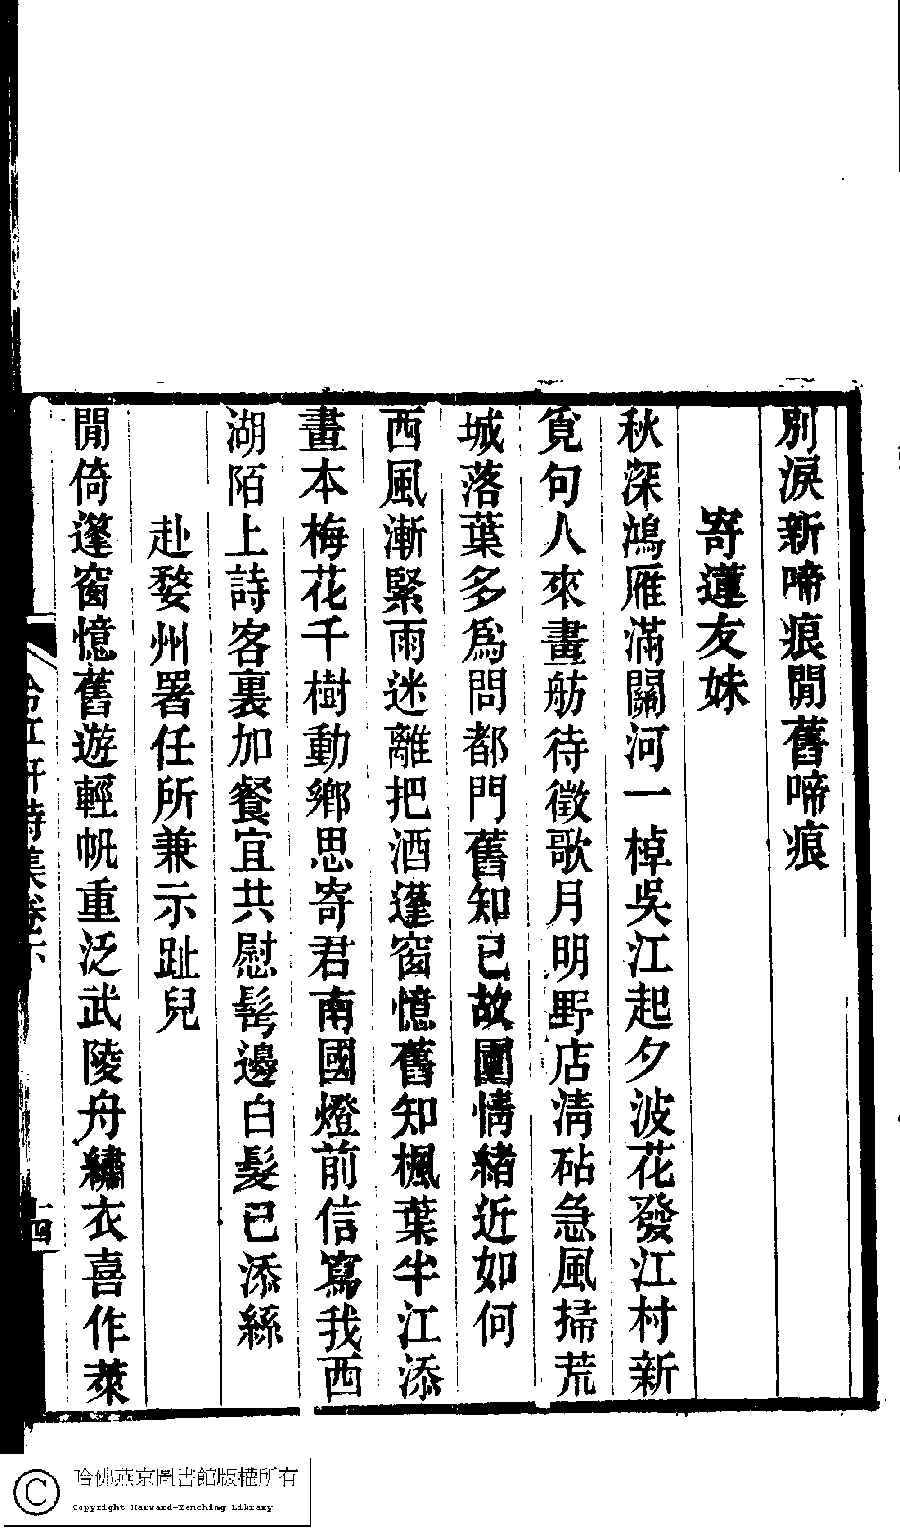 別淚新啼痕間舊啼痕
寄蓮友妹
秋深鴻雁滿關河一棹吳江起夕波花發江村新
覓句人來畫舫待徵歌月明野店淸砧急風掃荒
城落葉多爲問都門舊知已故園情緒近如何
西風漸緊雨迷離把酒蓬窗憶舊知楓葉半江添
畫本梅花千樹動鄉思寄君南國燈前信寫我西
湖陌上詩客裏加餐宜共慰髩邊白髮已添絲
赴婺州署任所兼示趾兒
閒倚篷窗憶舊遊輕帆重泛武陵舟繡衣喜作萊
軒詩集卷下
十四
哈佛燕京圖書館版權所有
Copyright Harvard-Yenching Library